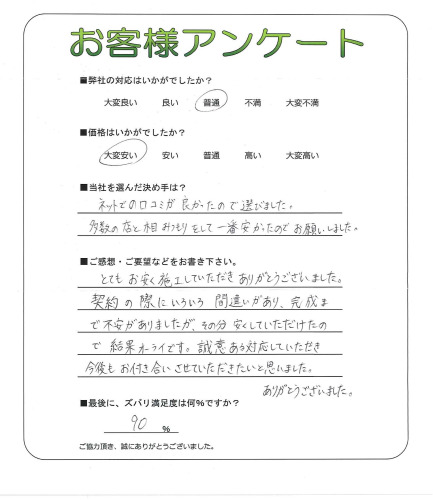 お客様アンケート
■弊社の対応はいかがでしたか?
大変良い 良い 普通 不満 大変不満
■価格はいかがでしたか?
大変安い 安い 普通 高い 大変高い
■当社を選んだ決め手は?
ネットでの口コミが良かったので選びました。
多数の店と相みつもりをして一番安かったのでお願いしました。
■ご感想・ご要望などをお書き下さい。
とてもお安く施工していただきありがとうございました。
契約の際にいろいろ間違いがあり、完成ま
で不安がありましたが、その分安くしていただけたの
で結果オーライです。誠意ある対応していただき
今後もお付き合いさせていただきたいと思いました。
ありがとうございました。
■最後に、ズバリ満足度は何%ですか?
90 %
ご協力頂き、誠にありがとうございました。